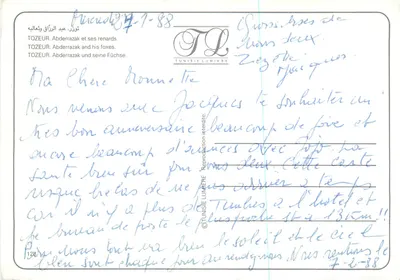 توزر. عبد الرزاق وثعالبه
TOZEUR. Abderrazak et ses renards.
TOZEUR. Abderrazak and his foxes.
TOZEUR. Abderrazak und seine Füchse.
TL
TUNISIE LUMIERE
27-1-88
Gros bises de
nous deux.
Zézette
Jacques
Ma Chère Monnette
Nous venons avec Jacques te souhaiter un
très bon anniversaire beaucoup de joie et
encore beaucoup d'années avec
santé bien sûr pour vous deux. Cette carte
risque hélas de ne pas arriver à temps
car il n'y a plus de Timbres à l'hotel et
le bureau de poste le plus proche est à 13 km!!
Pour nous tout va bien le soleil et le ciel
bleu sont chaque jour au rendez vous. Nous rentrons le
7-2-88
© TUNISIE LUMIERE